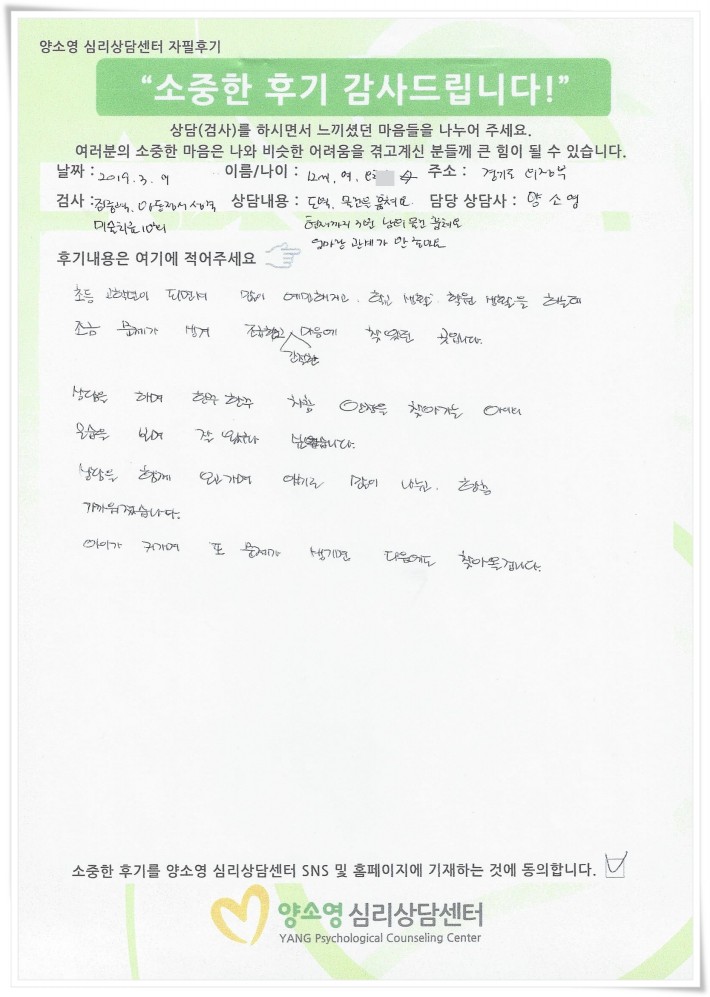 양소영 심리상담센터 자필후기
“소중한 후기 감사드립니다!”
상담(검사)를 하시면서 느끼셨던 마음들을 나누어 주세요.
여러분의 소중한 마음은 나와 비슷한 어려움을 겪고계신 분들께 큰 힘이 될 수 있습니다.
날짜 : 2019. 3. 9 이름/나이 : 12세, 여, 주소 : 경기도 의정부
검사 : 상담내용 : 도벽, 물건을 훔쳐요 담당 상담사 : 양 소 영
남의 물건 훔쳐요
엄마랑 관계가 안 좋아요
후기내용은 여기에 적어주세요
초등 고학년이 되면서 많이 예민해지고, 학교 생활, 학원 생활을 하는데
조금 문제가 생겨 조급하고 마음에 찾 곳입니다.
간절한
상담을 하며 한주 한주 차츰 안정을 찾아가는 아이의
모습을 보며 잘 왔구나
상담을 함께 오고가며 얘기도 많이 나누고, 한층
가까워졌습니다.
아이가 커가며 또 문제가 생기면 다음에도 찾아올겁니다.
소중한 후기를 양소영 심리상담센터 SNS 및 홈페이지에 기재하는 것에 동의합니다.
양소영 심리상담센터
YANG Psychological Counseling Center